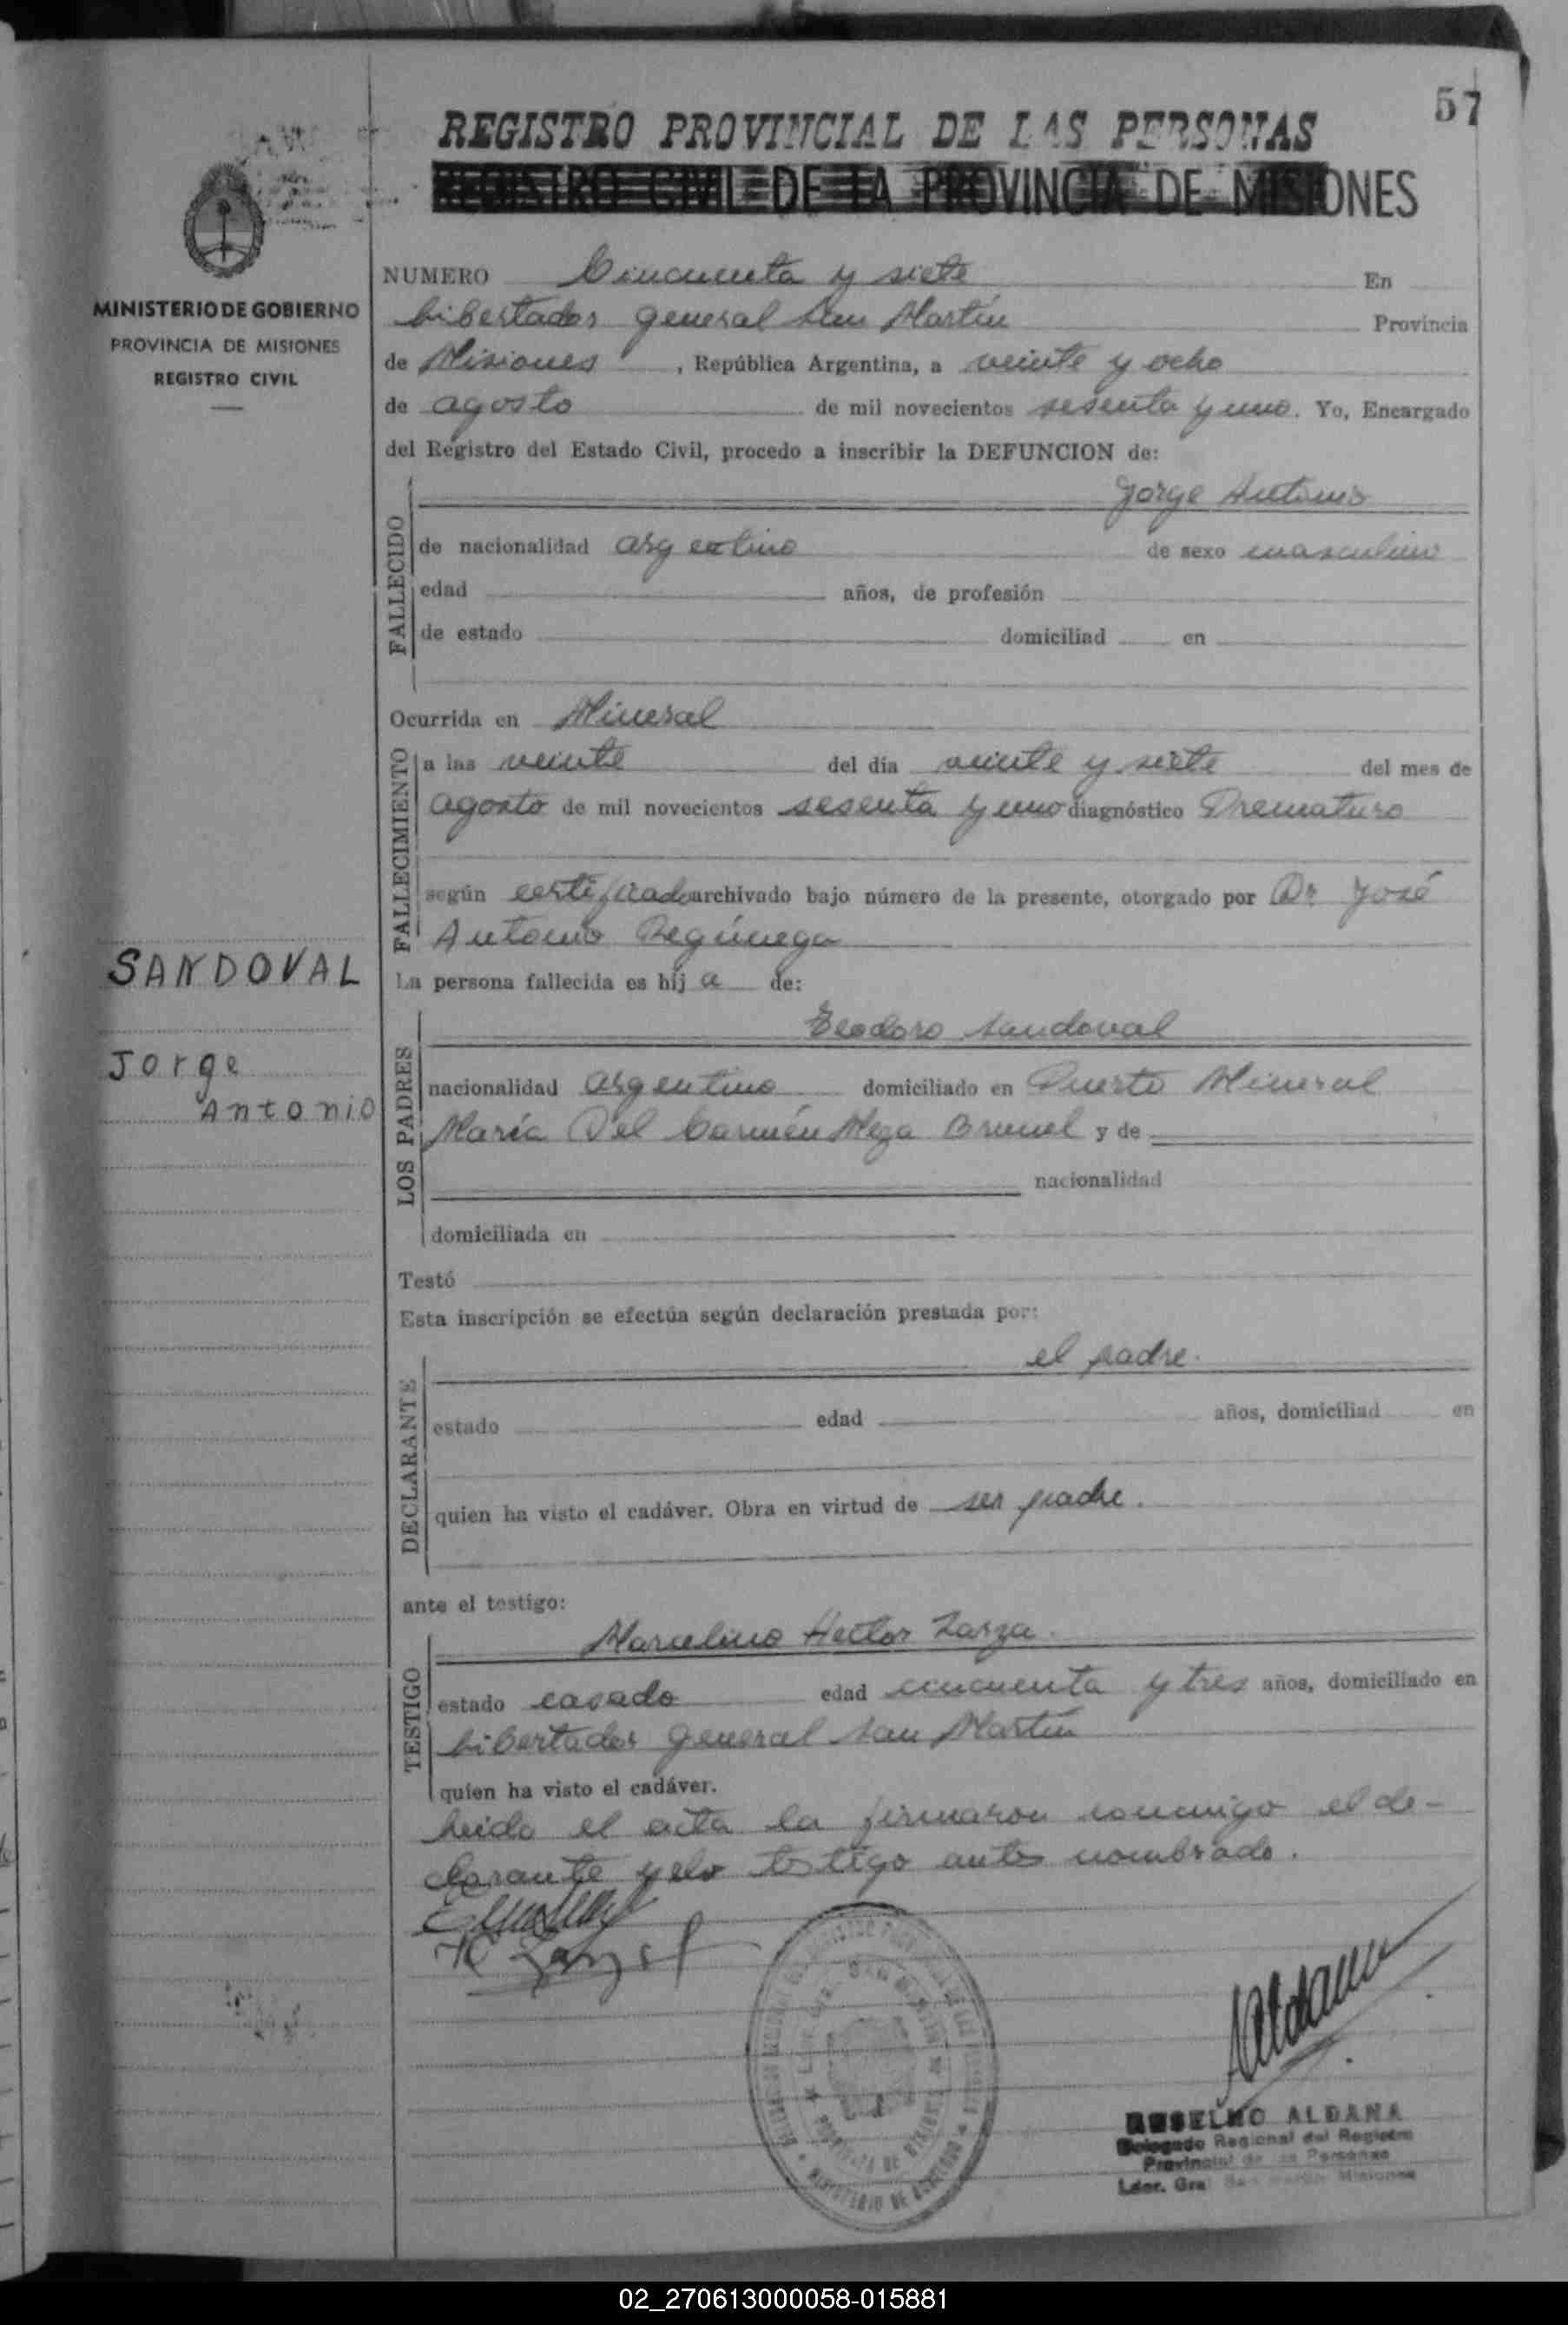 57
REGISTRO PROVINCIAL DE LAS PERSONAS
REGISTRO CIVIL DE LA PROVINCIA DE MISIONES
MINISTERIO DE GOBIERNO
PROVINCIA DE MISIONES
REGISTRO CIVIL
NUMERO Cincuenta y siete En
Libertador general San Martín Provincia
de Misiones, República Argentina, a veinte y ocho
de agosto de mil novecientos sesenta y uno. Yo, Encargado
del Registro del Estado Civil, procedo a inscribir la DEFUNCION de:
FALLECIDO
Jorge Antonio
de nacionalidad argentino de sexo masculino
edad años, de profesión
de estado domiciliad en
Ocurrida en Mineral
FALLECIMIENTO
a las veinte del día veinte y siete del mes de
agosto de mil novecientos sesenta y uno diagnóstico Prematuro
según certificado archivado bajo número de la presente, otorgado por Dr José
Antonio
SANDOVAL
Jorge
Antonio
La persona fallecida es hij a de:
LOS PADRES
Teodoro Sandoval
nacionalidad argentino domiciliado en Puerto Mineral
María Del Carmen Meza Brunel y de
nacionalidad
domiciliada en
Testó
Esta inscripción se efectúa según declaración prestada por:
DECLARANTE
el padre.
estado edad años, domiciliad en
quien ha visto el cadáver. Obra en virtud de ser padre.
ante el testigo:
TESTIGO
Marcelino Hector Zarza.
estado casado edad cincuenta y tres años, domiciliado en
Libertador general San Martín
quien ha visto el cadáver.
Leida el acta la firmaron conmigo el de-
clarante y el testigo antes nombrado.
ANSELMO ALDANA
Delegado Regional del Registro
Provincial de las Personas
Ldor. Gral San Martín Misiones
02_270613000058-015881